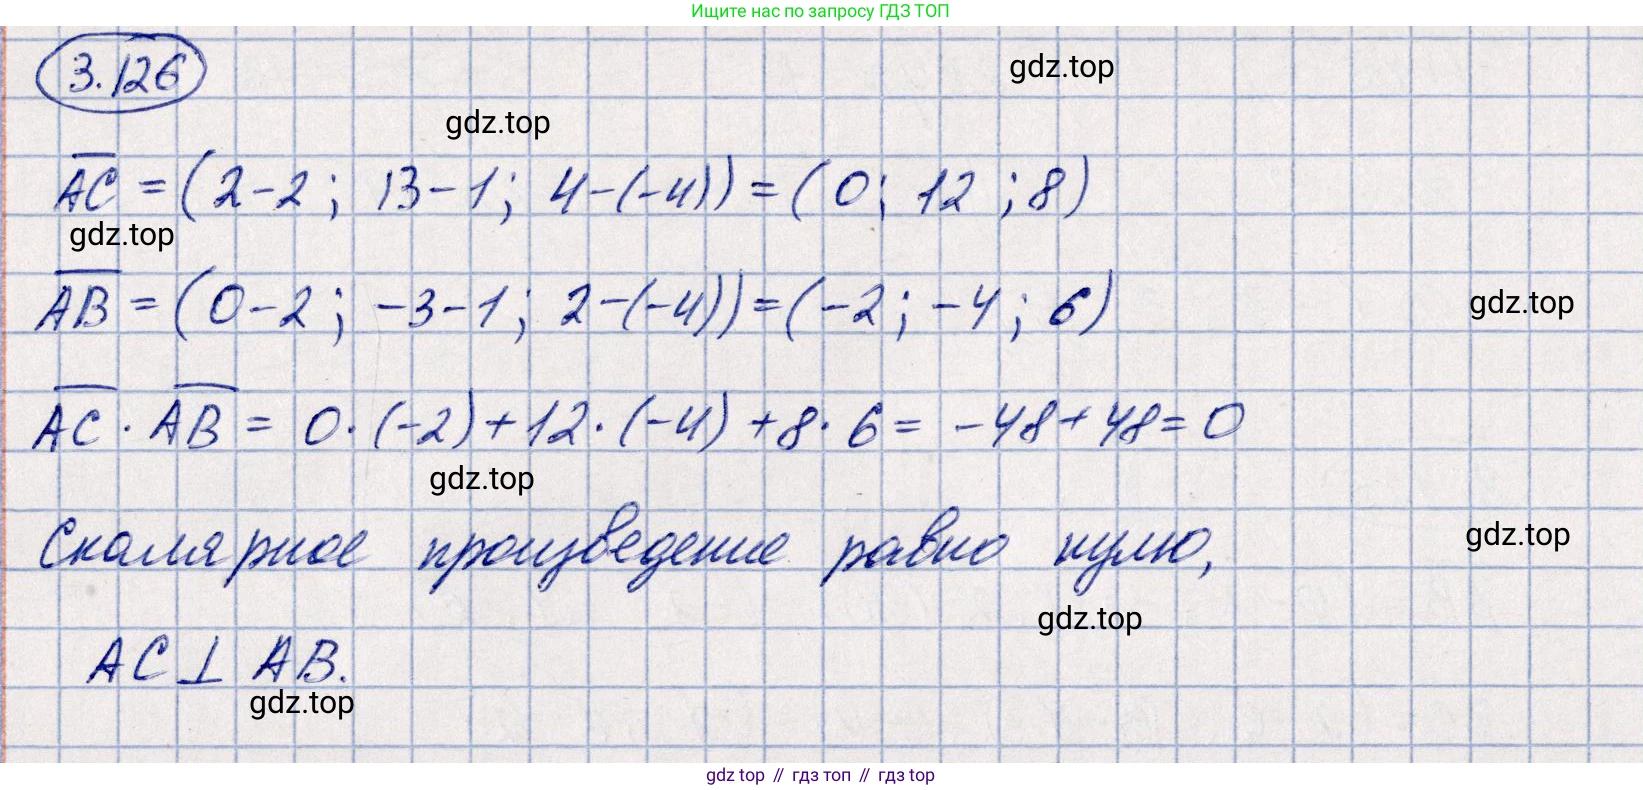 Ищите нас по запросу ГДЗ ТОП
3.126
gdz.top
gdz.top
AC = (2-2; 13-1; 4-(-4)) = (0; 12; 8)
gdz.top
AB = (0-2; -3-1; 2-(-4)) = (-2; -4; 6)
gdz.top
AC · AB = 0·(-2)+12·(-4)+8·6= -48+48=0
gdz.top
Скалярное произведение равно нулю,
gdz.top
gdz.top
AC⊥AB.
gdz.top
gdz top // гдз топ // гдз top